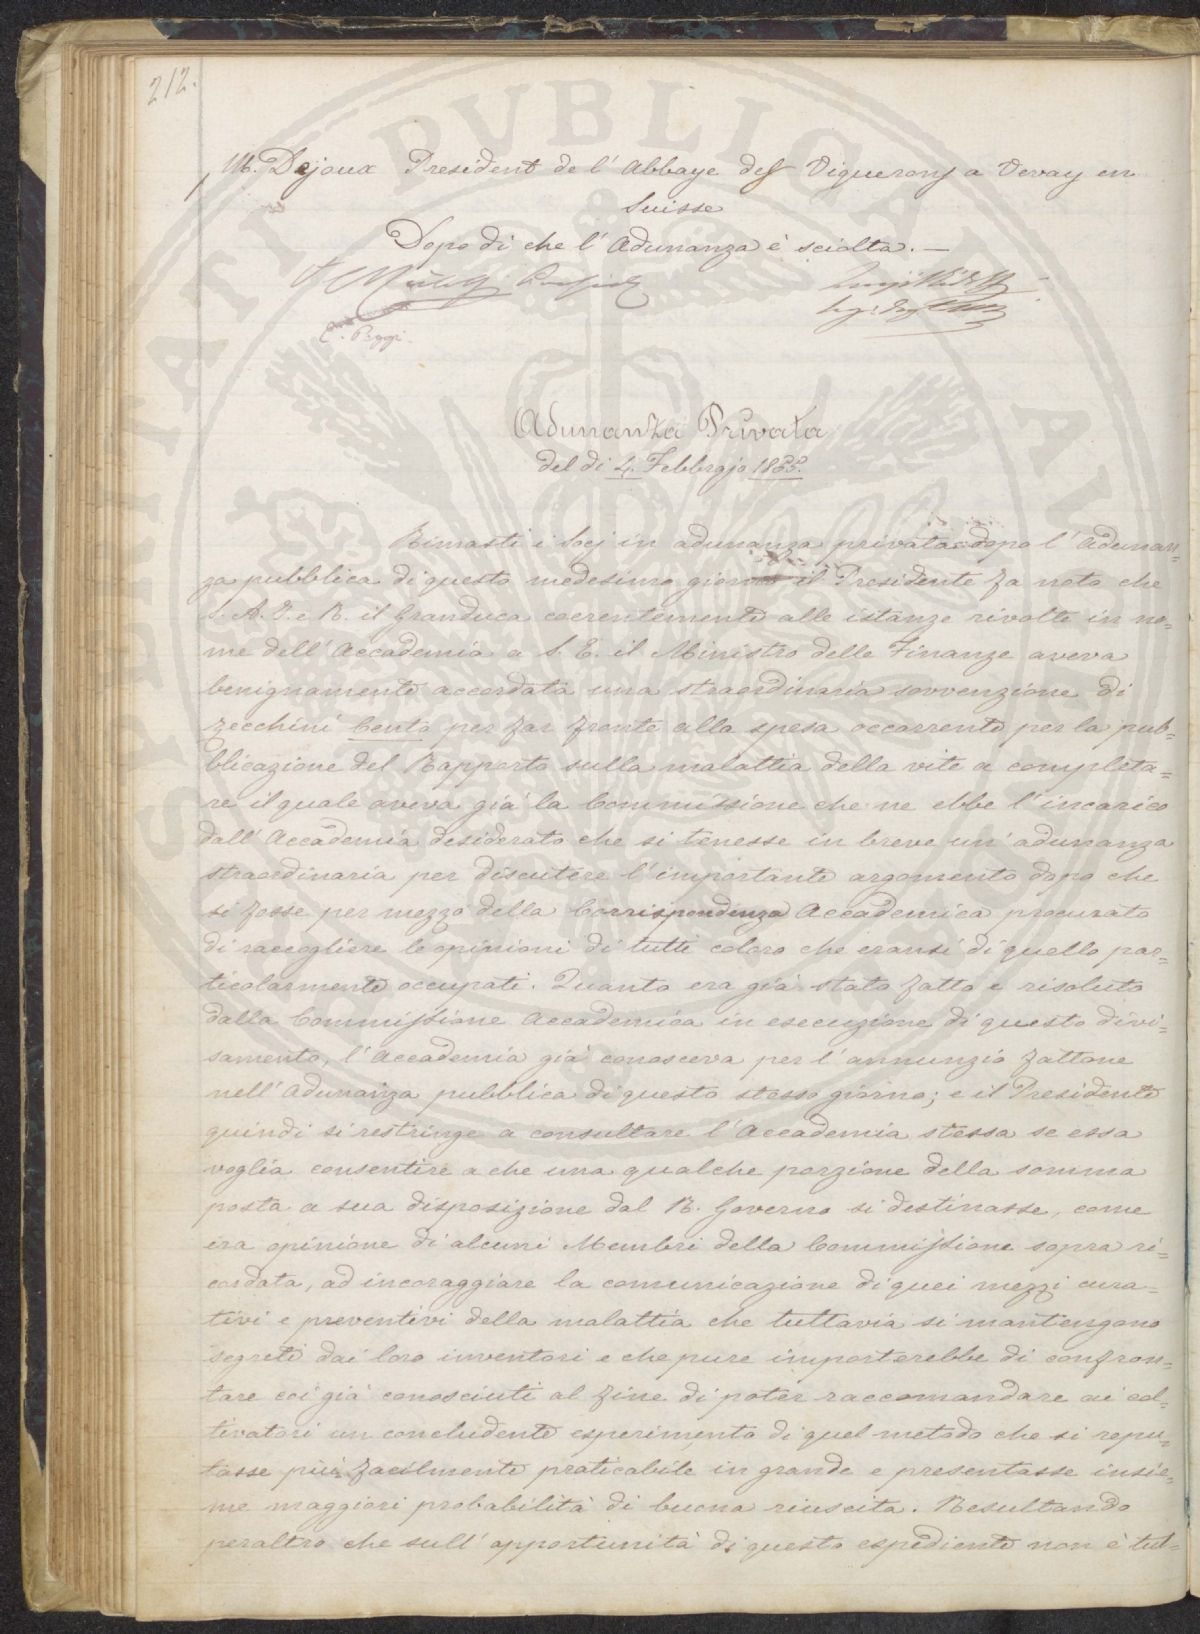 212.
M. Dejoux President de l' Abbaye des Viguerons a Vevay en
Suisse
Dopo di che l' Adunanza è sciolta. —
Adunanza Privata
del dì 4. Febbrajo 1855.
Rimasti i Socj in adunanza privata dopo l' Adunan=
za pubblica di questo medesimo giorno il Presidente fa noto che
S. A. I. e R. il Granduca coerentemente alle istanze rivolte in no=
me dell' Accademia a S. E. il Ministro delle Finanze aveva
benignamente accordata una straordinaria sovvenzione di
zecchini Cento per far fronte alla spesa occorrente per la pub=
blicazione del Rapporto sulla malattia della vite a completa=
re il quale aveva già la Commissione che ne ebbe l' incarico
dall' Accademia desiderato che si tenesse in breve un' adunanza
straordinaria per discutere l' importante argomento dopo che
si fosse per mezzo della Corrispondenza Accademica procurato
di raccogliere le opinioni di tutti coloro che eransi di quello par=
ticolarmente occupati. Quanto era già stato fatto e risoluto
dalla Commissione Accademica in esecuzione di questo divi=
samento, l' Accademia già conosceva per l' annunzio fattone
nell' Adunanza pubblica di questo stesso giorno; e il Presidente
quindi si restringe a consultare l' Accademia stessa se essa
voglia consentire a che una qualche porzione della somma
posta a sua disposizione dal R. Governo si destinasse, come
era opinione di alcuni Membri della Commissione sopra ri=
cordata, ad incoraggiare la comunicazione di quei mezzi cura=
tivi e preventivi della malattia che tuttavia si mantengono
segreti dai loro inventori e che pure importerebbe di confron=
tare coi già conosciuti al fine di poter raccomandare ai col=
tivatori un concludente esperimento di quel metodo che si repu=
tasse più facilmente praticabile in grande e presentasse insie=
me maggiori probabilità di buona riuscita. Resultando
peraltro che sull' opportunità di questo espediente non è tut=